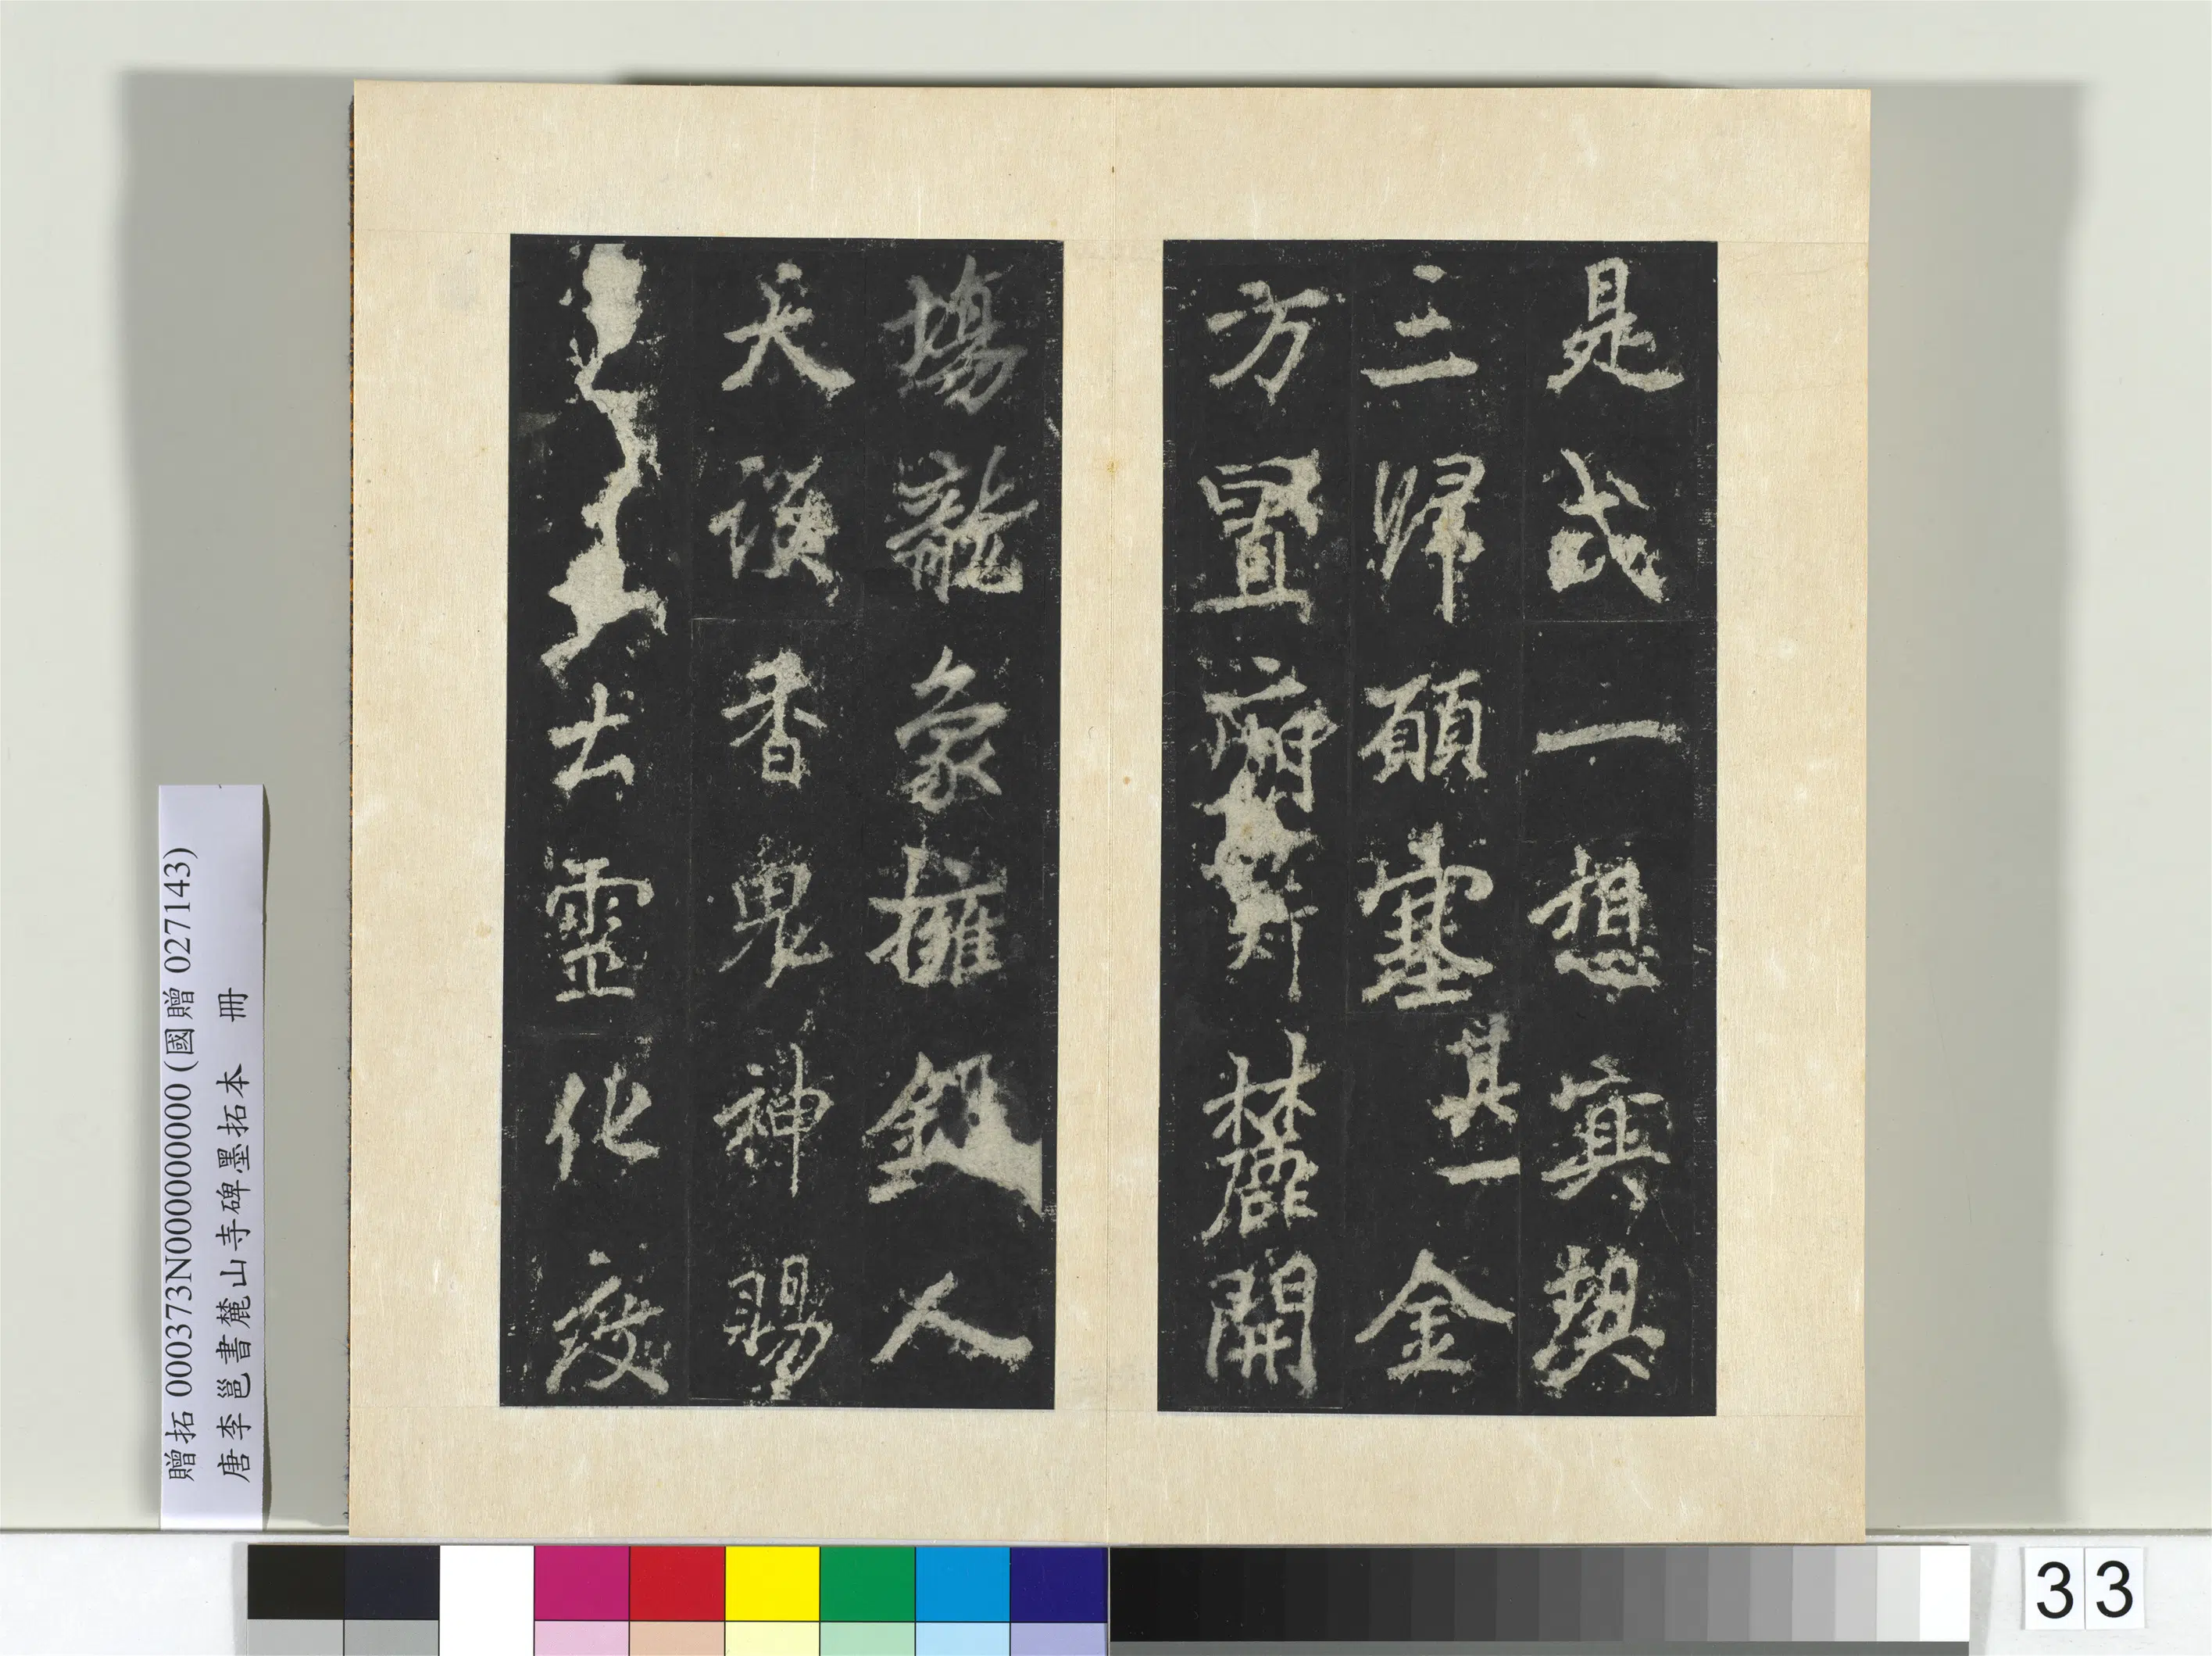 是式一想冥契
三歸願塞其一金
方置廟麓開
場龍象擁人
天護香鬼神賜
去靈化
贈拓 000373N000000000 (國贈 027143)
唐李邕書麓山寺碑墨拓本 冊
33